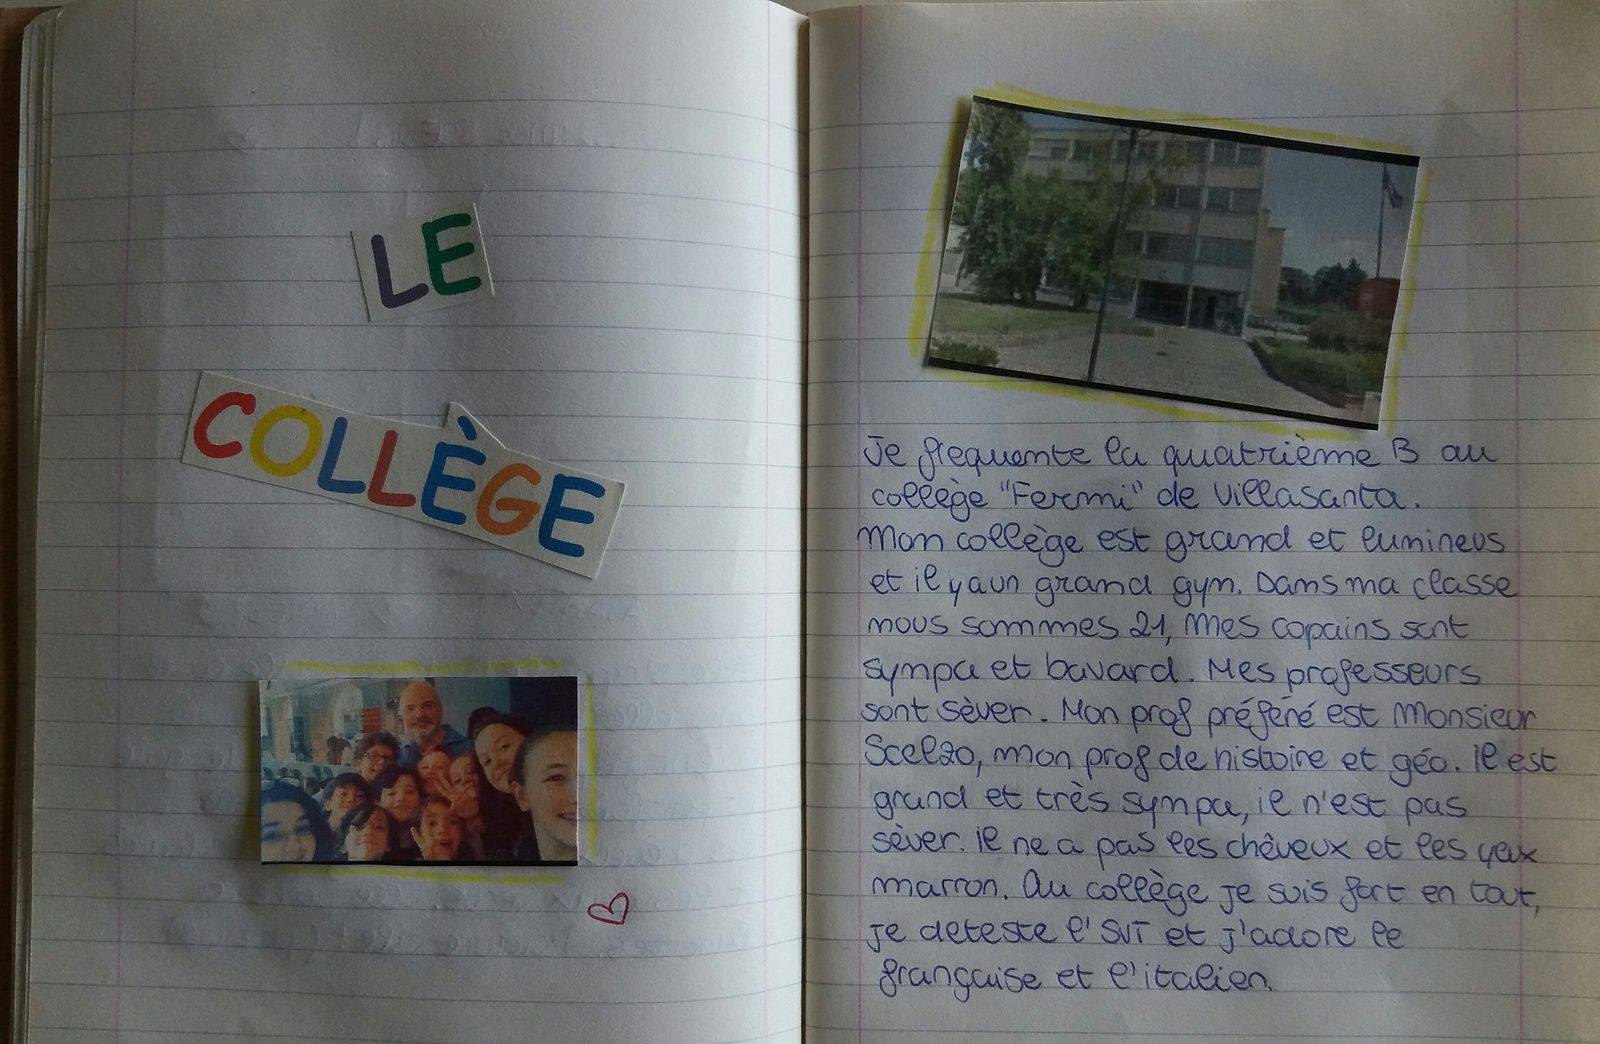 LE
COLLÈGE
Je frequente la quatrième B au
collège "Fermi" de Villasanta.
Mon collège est grand et lumineus
et il y a un grand gym. Dans ma classe
nous sommes 21, mes copains sont
sympa et bavard. Mes professeurs
sont sèver. Mon prof préféré est Monsieur
Scelzo, mon prof de histoire et géo. Il est
grand et très sympa, il n'est pas
sèver. Il ne a pas les chêveux et les yeux
marron. Au collège je suis fort en tout,
je deteste l'SVT et j'adore le
française et l'italien.